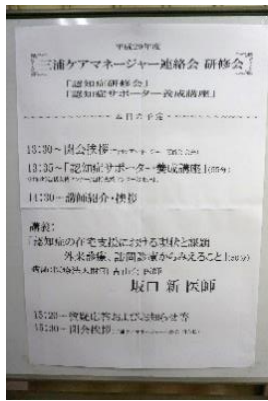 平成29年度
三浦ケアマネージャー連絡会 研修会
「認知症研修会」
「認知症サポーター養成講座」
本日の予定
13:30~開会挨拶
13:35~「認知症サポーター養成講座」
14:30~講師紹介・挨拶
講義:
「認知症の在宅支援における現状と課題
外来診療、訪問診療からみえること」
医師
坂口 新 医師
15:20~質疑応答およびお知らせ等
15:30~閉会挨拶